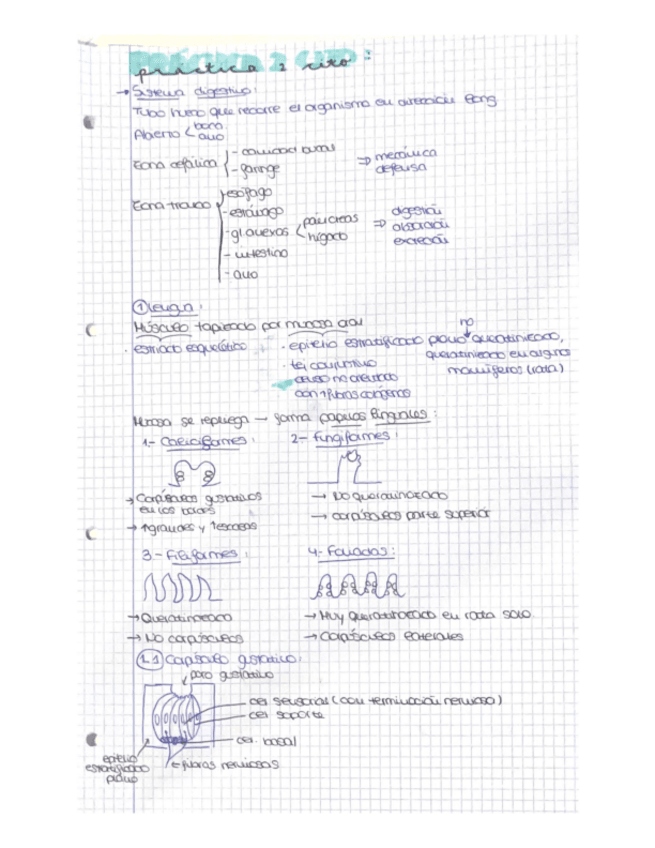 práctica 2 cito:
→ Sistema digestivo:
Tubo hueco que recorre el organismo en dirección long.
Abierto < boca
ano
Zona cefálica { - cavidad bucal
- faringe
⇒ mecánica
defensa
Zona tronco { esófago
- estómago
- gl. anexas < páncreas
hígado
- intestino
- ano
⇒ digestión
absorción
excreción
① Lengua:
Músculo tapizado por mucosa oral
· estriado esquelético
· epitelio estratificado plano no queratinizado,
queratinizado en algunos
mamíferos (rata)
· tej conjuntivo
denso no orientado
con fibras colágenas
Mucosa se repliega → forma papilas linguales:
1- Caliciformes:
2- Fungiformes:
→ Corpúsculos gustativos
en los bordes
→ + grandes y + escasas
→ No queratinizado
→ corpúsculos parte superior
3- Filiformes:
4- Foliadas:
→ Queratinizado
→ No corpúsculos
→ Muy queratinizado en rata solo.
→ Corpúsculos laterales
1.1 Corpúsculo gustativo:
poro gustativo
cél sensorial (con terminación nerviosa)
cél soporte
cél. basal
epitelio
estratificado
plano
fibras nerviosas